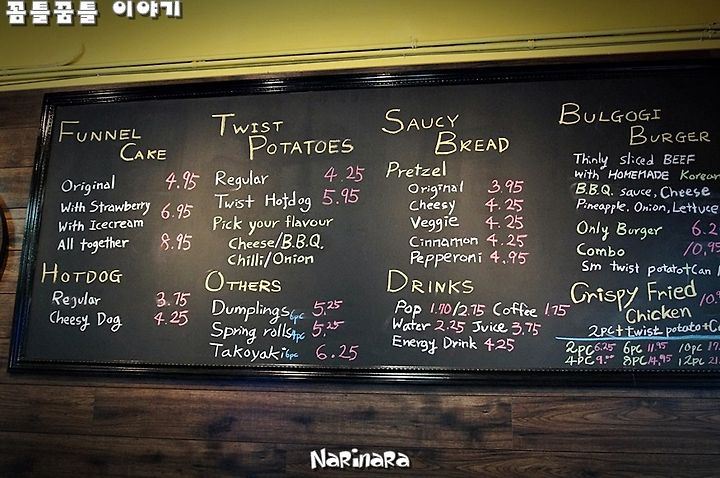 꼼틀꿈틀 이야기
FUNNEL CAKE
Original 4.95
With Strawberry
With Icecream 6.95
All together 8.95
HOTDOG
Regular 3.75
Cheesy Dog 4.25
TWIST POTATOES
Regular 4.25
Twist Hotdog 5.95
Pick your flavour
Cheese/B.B.Q.
Chilli/Onion
OTHERS
Dumplings 6pc 5.25
Spring rolls 4pc 5.25
Takoyaki 6pc 6.25
SAUCY BREAD
Pretzel
Original 3.95
Cheesy 4.25
Veggie 4.25
Cinnamon 4.25
Pepperoni 4.95
DRINKS
Pop 1.70/2.75 Coffee 1.75
Water 2.25 Juice 3.75
Energy Drink 4.25
BULGOGI BURGER
Thinly sliced BEEF
with HOMEMADE Korean
B.B.Q. sauce, Cheese
Pineapple, Onion, Lettuce
Only Burger 6.2
Combo 10.95
Sm twist potato+Can
Crispy Fried Chicken 10.
2pc+twist potato+C
2pc 5.25 6pc 11.95 10pc 17
4pc 9. 8pc 14.95 12pc 21
NARINARA